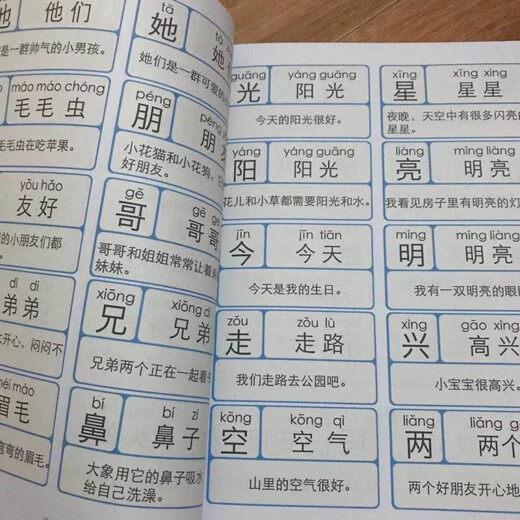 他们
是一群帅气的小男孩。
máo máo chóng
毛毛虫
毛毛虫在吃苹果。
yǒu hǎo
友好
的小朋友们都
dì di
弟弟
开心，闷闷不
méi máo
眉毛
弯弯的眉毛。
tā tā
她 她
她们是一群可爱的小
péng péng
朋 朋友
小花猫和小花狗，它
好朋友。
gē gē ge
哥 哥哥
哥哥和姐姐常常让着弟
妹妹。
xiōng xiōng dì
兄 兄弟
兄弟两个正在一起看书
bí bí zi
鼻 鼻子
大象用它的鼻子吸水
给自己洗澡。
guāng yáng guāng
光 阳光
今天的阳光很好。
yáng yáng guāng
阳 阳光
花儿和小草都需要阳光和水。
jīn jīn tiān
今 今天
今天是我的生日。
zǒu zǒu lù
走 走路
我们走路去公园吧。
kōng kōng qì
空 空气
山里的空气很好。
xīng xīng xing
星 星星
夜晚，天空中有很多闪亮的
星星。
liàng míng liàng
亮 明亮
我看见房子里有明亮的灯
míng míng liàng
明 明亮
我有一双明亮的眼
xìng gāo xìng
兴 高兴
小宝宝很高兴。
liǎng liǎng gè
两 两个
两个好朋友开心地